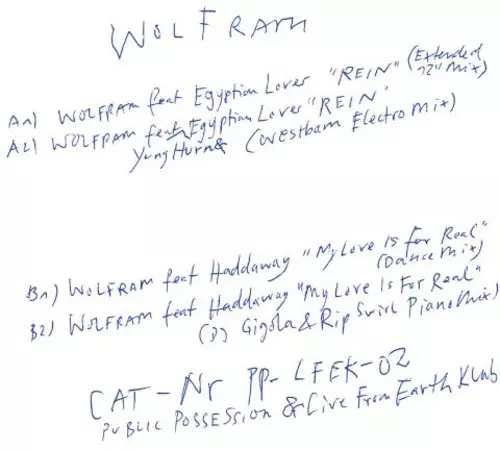 WOLFRAM
A1) WOLFRAM feat Egyptian Lover "REIN" (Extended 12" Mix)
A2) WOLFRAM feat Egyptian Lover "REIN"
Yung Hurn & (Westbam Electro Mix)
B1) WOLFRAM feat Haddaway "My Love Is For Real"
(Dance Mix)
B2) WOLFRAM feat Haddaway "My Love Is For Real"
(DJ Gigola & Rip Swirl Piano Mix)
CAT-Nr PP-LFEK-02
PUBLIC POSSESSION & Live From Earth Klub